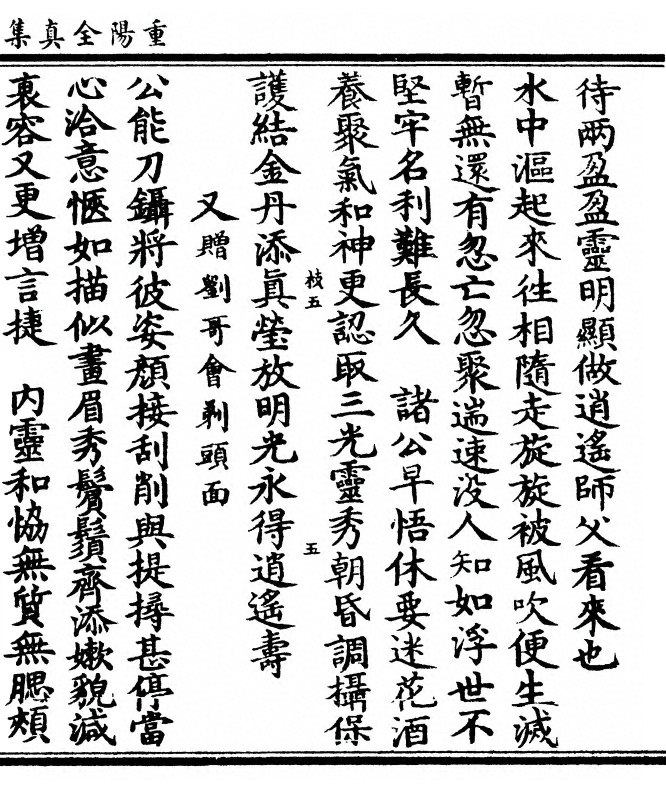 重陽全真集
待兩盈盈靈明顯做逍遙師父看來也
水中漚起來徃相隨走旋旋被風吹便生滅
暫無還有忽亡忽聚耑速没人知如浮世不
堅牢名利難長久　諸公早悟休要迷花酒
養聚氣和神更認取三光靈秀朝昏調攝保
護結金丹添眞瑩放明光永得逍遙壽
枝五
五
又贈劉哥會剃頭面
公能刀鑷將彼姿顔接刮削與提撏甚停當
心洽意愜如描似畫眉秀鬢鬚齊添嫩貌減
裏容又更增言捷　内靈和恊無質無腮頰